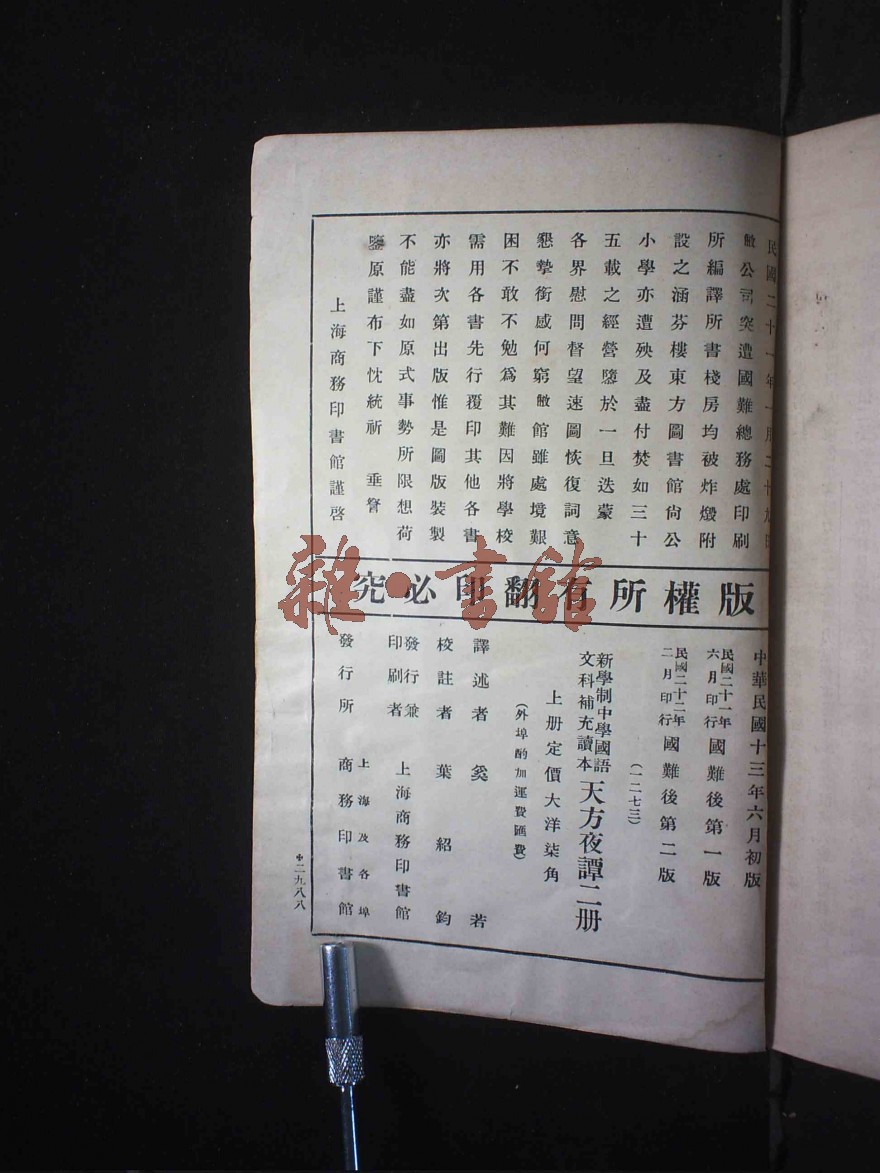 民國二十一年一月二十九日
敝公司突遭國難總務處印刷
所編譯所書棧房均被炸燬附
設之涵芬樓東方圖書館尚公
小學亦遭殃及盡付焚如三十
五載之經營隳於一旦迭蒙
各界慰問督望速圖恢復詞意
懇摯銜感何窮敝館雖處境艱
困不敢不勉爲其難因將學校
需用各書先行覆印其他各書
亦將次第出版惟是圖版裝製
不能盡如原式事勢所限想荷
鑒原謹布下忱統祈 垂詧
上海商務印書館謹啓
版權所有翻印必究
中華民國十三年六月初版
民國二十一年六月印行 國難後第一版
民國二十二年二月印行 國難後第二版
(一二七三)
新學制中學國語文科補充讀本 天方夜譚二册
上册定價大洋柒角
(外埠酌加運費匯費)
譯述者 奚若
校註者 葉紹鈞
發行兼印刷者 上海商務印書館
發行所 上海及各埠 商務印書館
二九八八
雜·書館